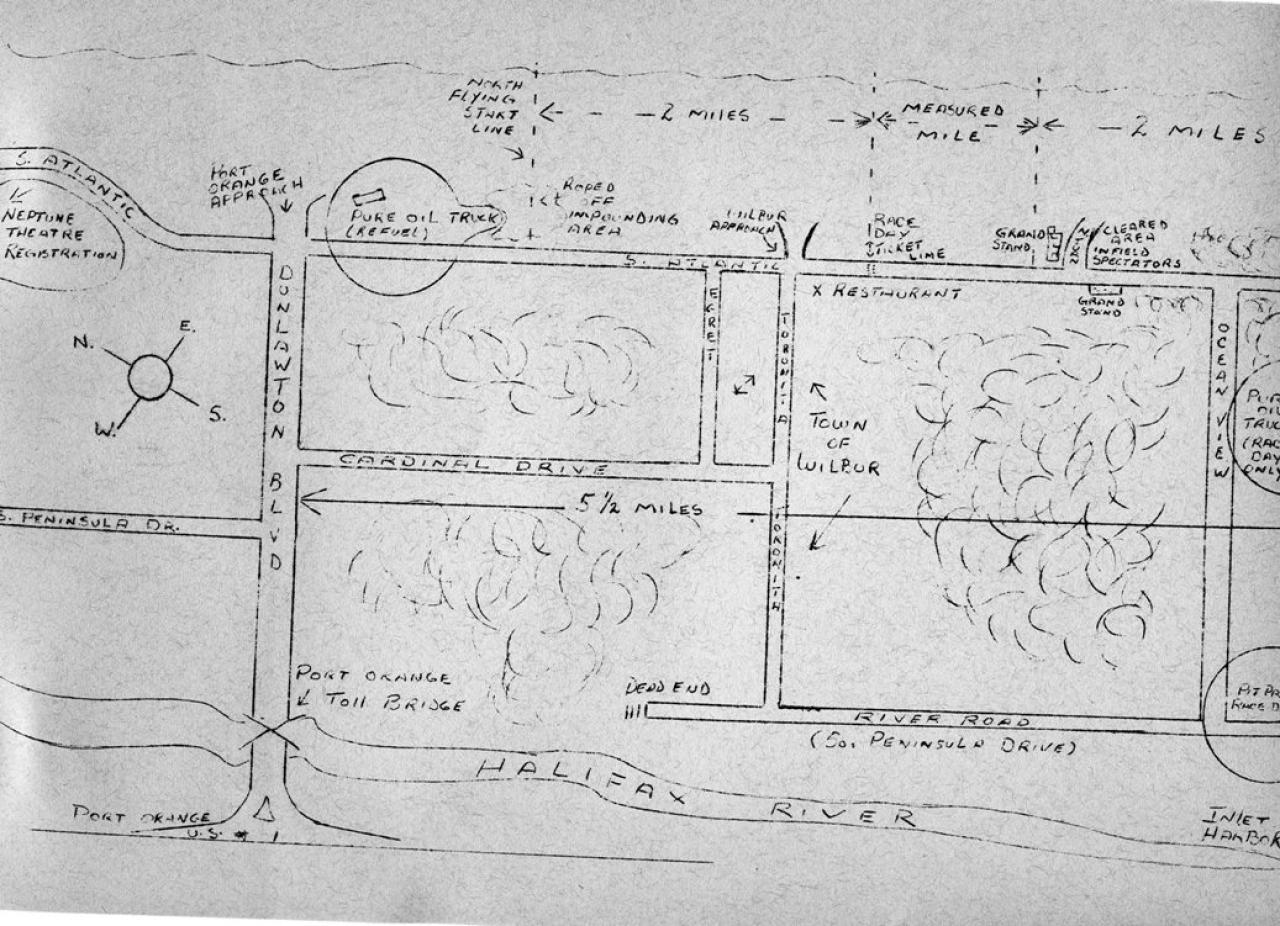 NORTH
FLYING
START
LINE
2 MILES
MEASURED
MILE
2 MILES
S. ATLANTIC
NEPTUNE
THEATRE
REGISTRATION
PORT
ORANGE
APPROACH
PURE OIL TRUCK
(REFUEL)
ROPED
OFF
IMPOUNDING
AREA
WILBUR
APPROACH
RACE
DAY
TICKET
LINE
GRAND
STAND
CLEARED
AREA
INFIELD
SPECTATORS
S. ATLANTIC
X RESTAURANT
GRAND
STAND
N.
E.
S.
W.
DUNLAWTON
BLVD
EGRET
TORONITA
OCEAN VIEW
TOWN
OF
WILBUR
PURE
OIL
TRUC
(RAC
DAY
ONLY
CARDINAL DRIVE
5 1/2 MILES
S. PENINSULA DR.
TORONITA
PORT ORANGE
Toll BRIDGE
DEAD END
RIVER ROAD
(So. PENINSULA DRIVE)
PIT PA
RACE D
HALIFAX RIVER
PORT ORANGE
U.S. # 1
INLET
HARBOR